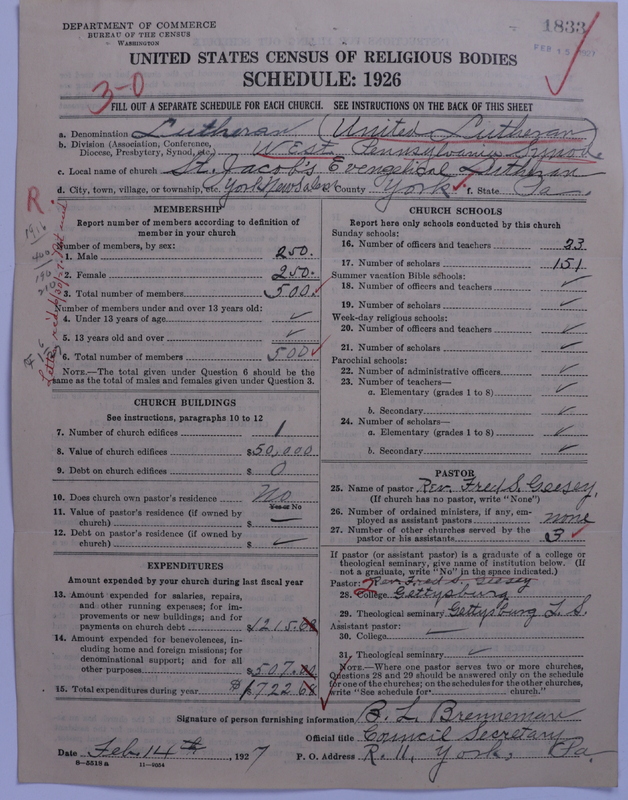 DEPARTMENT OF COMMERCE
BUREAU OF THE CENSUS
WASHINGTON
1833
FEB 15 1927
UNITED STATES CENSUS OF RELIGIOUS BODIES
SCHEDULE: 1926
3-0
FILL OUT A SEPARATE SCHEDULE FOR EACH CHURCH. SEE INSTRUCTIONS ON THE BACK OF THIS SHEET
a. Denomination Lutheran (United Lutheran)
b. Division (Association, Conference, Diocese, Presbytery, Synod, etc.) West Pennsylvania Synod
c. Local name of church St. Jacob's Evangelical Lutheran
d. City, town, village, or township, etc. York New Salem e. County York f. State Pa.
R.
1916
400
190
210
MEMBERSHIP
Report number of members according to definition of
member in your church
Number of members, by sex:
1. Male 250.
2. Female 250.
3. Total number of members 500
Number of members under and over 13 years old:
4. Under 13 years of age ✓
5. 13 years old and over ✓
6. Total number of members 500
NOTE.—The total given under Question 6 should be
same as the total of males and females given under Question 3.
CHURCH BUILDINGS
See instructions, paragraphs 10 to 12
7. Number of church edifices 1
8. Value of church edifices $50,000
9. Debt on church edifices $ 0
10. Does church own pastor's residence No
Yes or No
11. Value of pastor's residence (if owned by
church) $ —
12. Debt on pastor's residence (if owned by
church) $ —
EXPENDITURES
Amount expended by your church during last fiscal year
13. Amount expended for salaries, repairs,
and other running expenses; for im-
provements or new buildings; and for
payments on church debt $1215.68
14. Amount expended for benevolences, in-
cluding home and foreign missions; for
denominational support; and for all
other purposes $507.00
15. Total expenditures during year $1722.68
CHURCH SCHOOLS
Report here only schools conducted by this church
Sunday schools:
16. Number of officers and teachers 23
17. Number of scholars 151
Summer vacation Bible schools:
18. Number of officers and teachers ✓
19. Number of scholars ✓
Week-day religious schools:
20. Number of officers and teachers ✓
21. Number of scholars ✓
Parochial schools:
22. Number of administrative officers ✓
23. Number of teachers—
a. Elementary (grades 1 to 8) ✓
b. Secondary ✓
24. Number of scholars—
a. Elementary (grades 1 to 8) ✓
b. Secondary ✓
PASTOR
25. Name of pastor Rev. Fred S. Geesey,
(If church has no pastor, write "None")
26. Number of ordained ministers, if any, em-
ployed as assistant pastors none
27. Number of other churches served by the
pastor or his assistants 3
If pastor (or assistant pastor) is a graduate of a college or
theological seminary, give name of institution below. (If
not a graduate, write "No" in the space indicated.)
Pastor: Rev. Fred S. Geesey
28. College Gettysburg
29. Theological seminary Gettysburg L. S.
Assistant pastor:
30. College —
31. Theological seminary ✓
NOTE.—Where one pastor serves two or more churches,
Questions 28 and 29 should be answered only on the schedule
for one of the churches; on the schedules for the other churches,
write "See schedule for church."
Signature of person furnishing information B. L. Brenneman
Official title Council Secretary
Date Feb. 14th, 1927 P. O. Address R. 11, York, Pa.
8—5518 a 11—9554